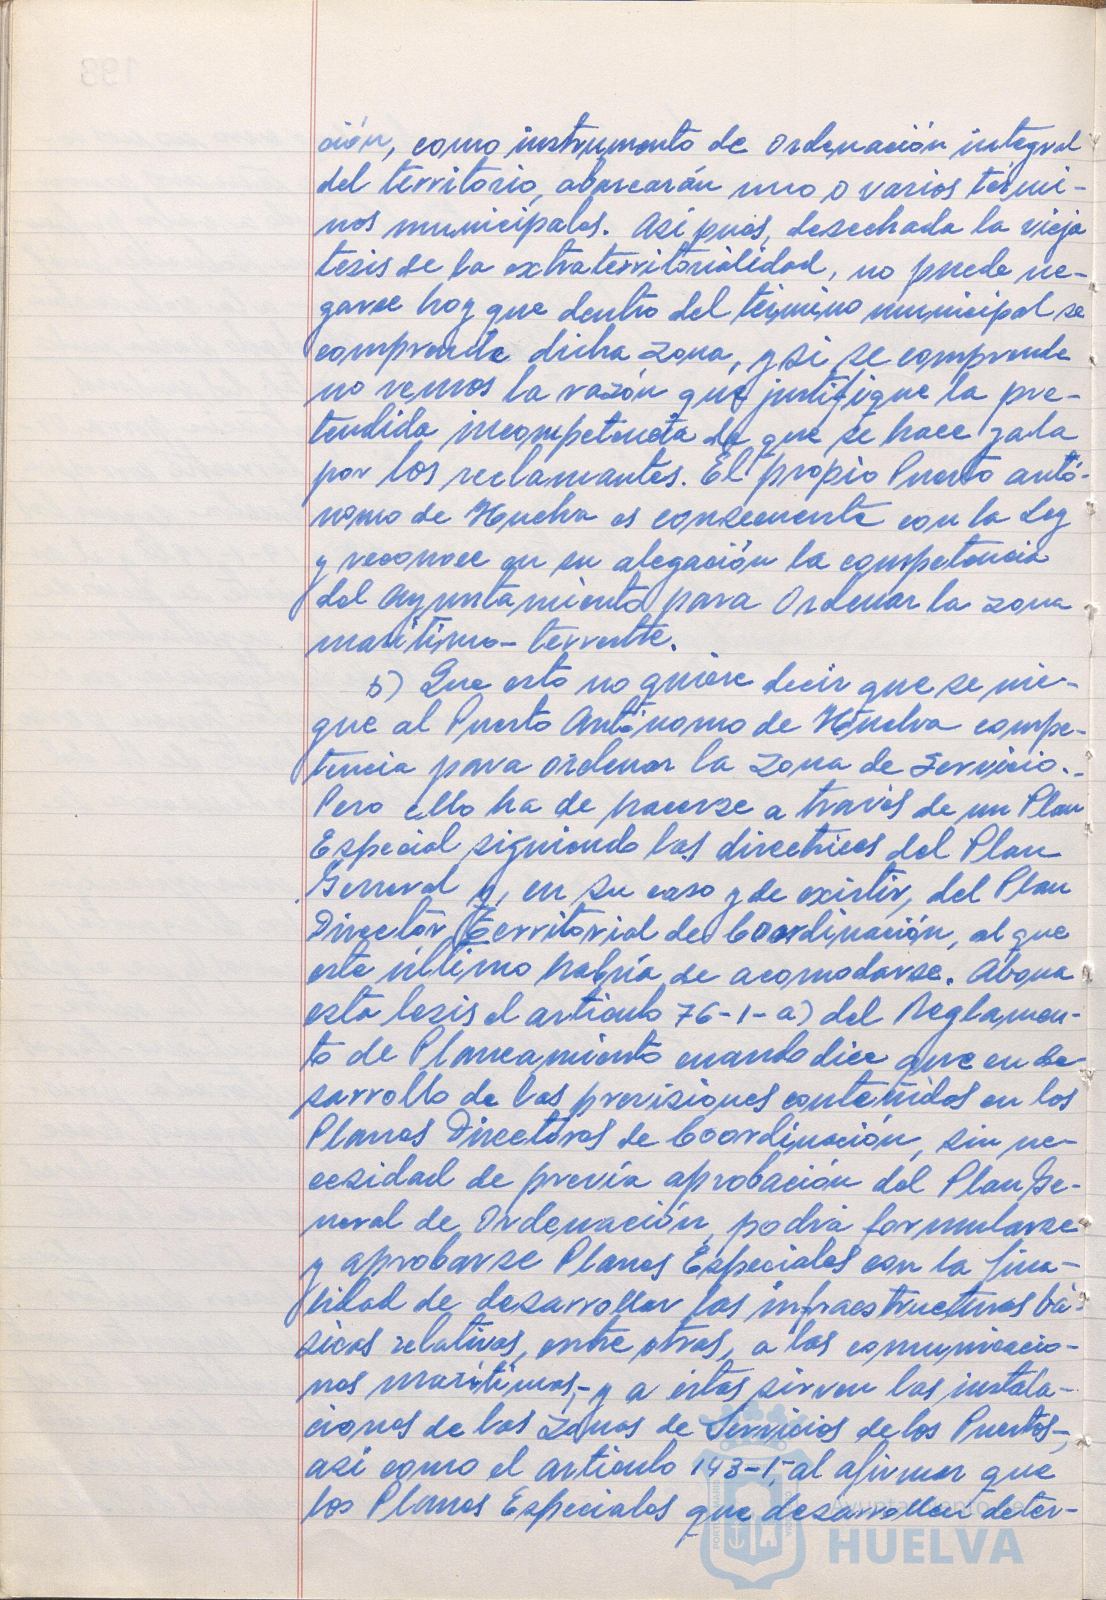 ción, como instrumento de Ordenación integral
del territorio, abarcarán uno o varios térmi-
nos municipales. Así pues, desechada la vieja
tesis de la extraterritorialidad, no puede ne-
garse hoy que dentro del término municipal se
comprende dicha zona, y si se comprende
no vemos la razón que justifique la pre-
tendida incompetencia de que se hace gala
por los reclamantes. El propio Puerto autó-
nomo de Huelva es consecuente con la Ley
y reconoce en su alegación la competencia
del Ayuntamiento para Ordenar la zona
marítimo-terrestre.
b) Que esto no quiere decir que se nie-
gue al Puerto Autónomo de Huelva compe-
tencia para ordenar la Zona de Servicio.-
Pero ello ha de hacerse a través de un Plan
Especial siguiendo las directrices del Plan
General y, en su caso y de existir, del Plan
Director Territorial de Coordinación, al que
este último habría de acomodarse. Abona
esta tesis el artículo 76-1-a) del Reglamen-
to de Planeamiento cuando dice que en de-
sarrollo de las previsiones contenidas en los
Planes Directores de Coordinación, sin ne-
cesidad de previa aprobación del Plan Ge-
neral de Ordenación, podrá formularse
y aprobarse Planes Especiales con la fina-
lidad de desarrollar las infraestructuras bá-
sicas relativas, entre otras, a las comunicacio-
nes marítimas,-y a éstas sirven las instala-
ciones de las Zonas de Servicios de los Puertos-,
así como el artículo 143-1, al afirmar que
los Planes Especiales que desarrollen deter-
Ayuntamiento de
HUELVA